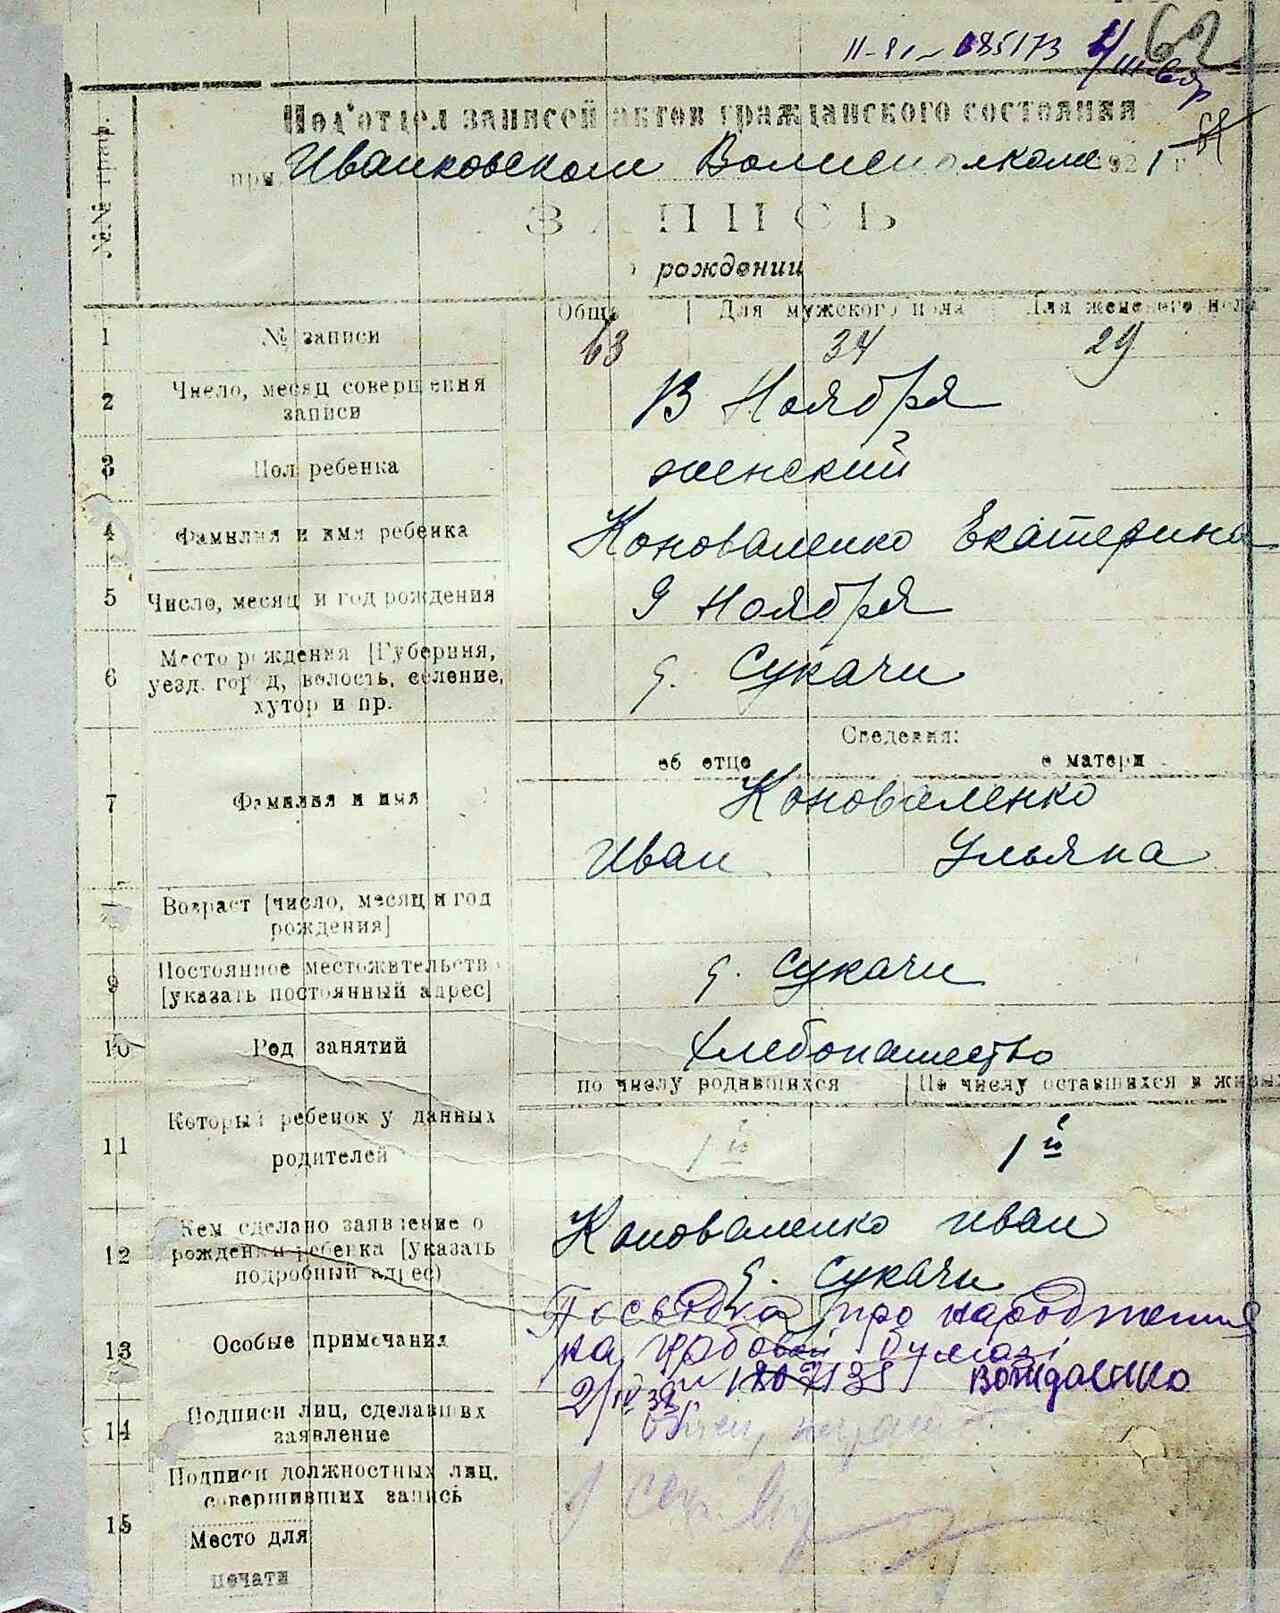 II-81 - 085173
62
Под'отдел записей актов гражданского состояния
при Иванковском Волисполкоме 1921 г.
ЗАПИСЬ
рождении
№№ граф.
Общ. | Для мужского пола | Для женского пола
1 № записи 63 34 29
2 Число, месяц совершения записи 13 Ноября
3 Пол ребенка женский
4 Фамилия и имя ребенка Коноваленко Екатерина
5 Число, месяц и год рождения 9 Ноября
6 Место рождения [Губерния, уезд, город, волость, селение, хутор и пр. с. Сукачи
Сведения:
об отце о матери
7 Фамилия и имя Коноваленко
Иван Ульяна
Возраст [число, месяц и год рождения]
9 Постоянное местожительство [указать постоянный адрес] с. Сукачи
10 Род занятий Хлебопашество
по числу родившихся | По числу оставшихся в живых
11 Который ребенок у данных родителей 1й 1й
12 Кем сделано заявление о рождении ребенка [указать подробный адрес) Коноваленко Иван
с. Сукачи
13 Особые примечания Посвідка про народження
на бумазі
2/IV 38
14 Подписи лиц, сделавших заявление
15 Подписи должностных лиц, совершивших запись
Место для
печати